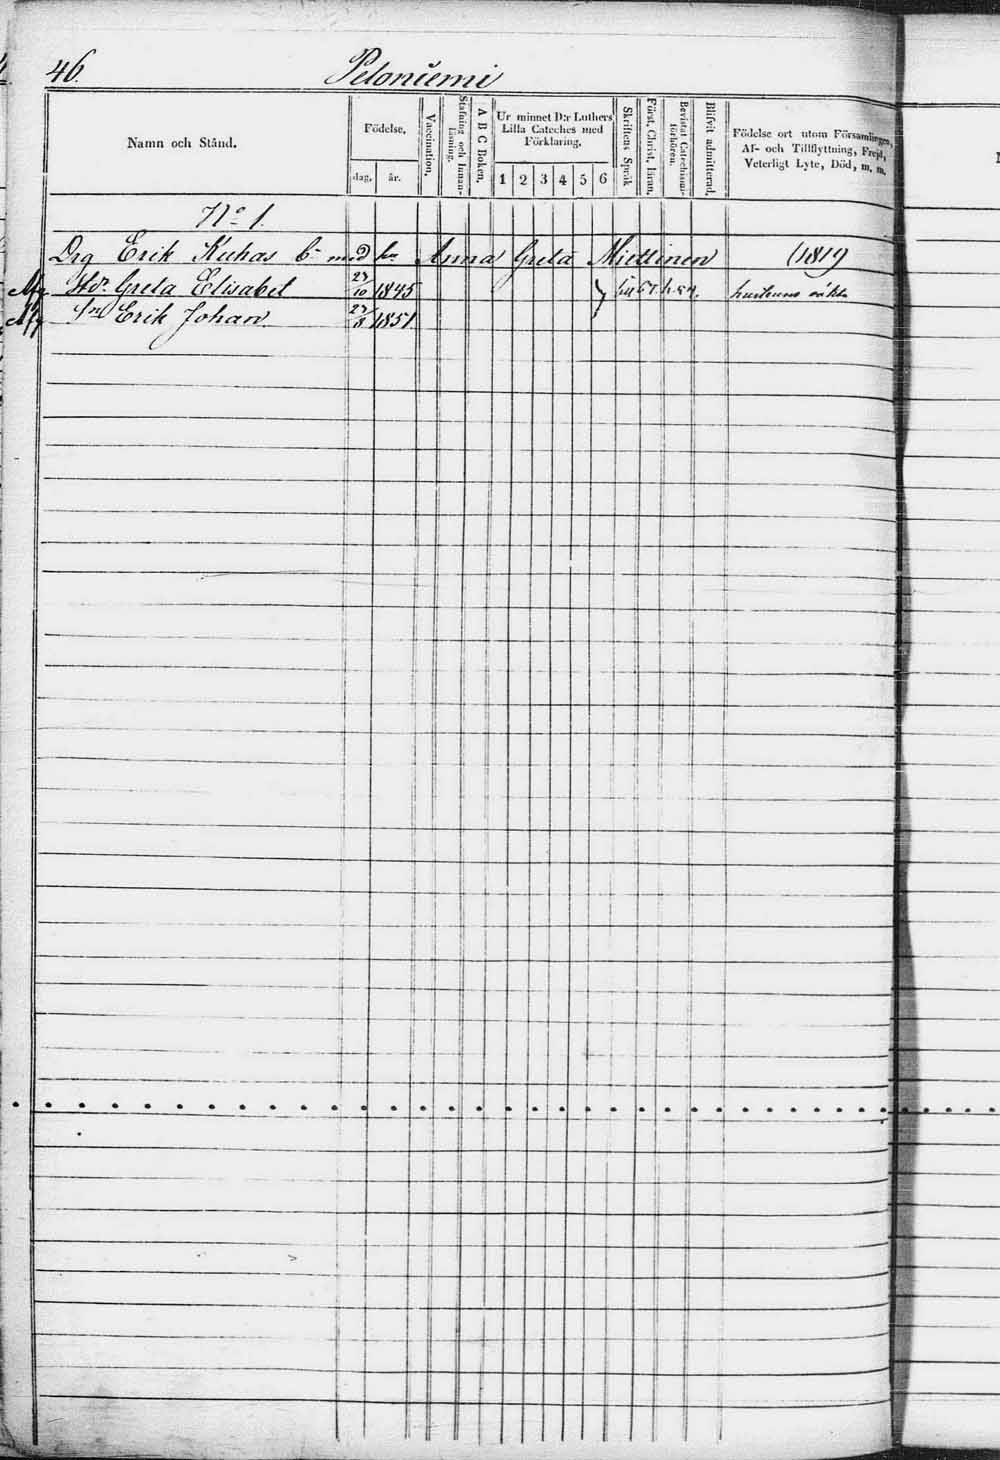 46. Peloniemi
Namn och Stånd.
Födelse.
dag. år.
Vaccination.
Stafning och Innan-läsning.
A B C Boken.
Ur minnet D:r Luthers Lilla Cateches med Förklaring.
1 2 3 4 5 6
Skriftens Språk
Först. Christ. läran.
Bevistat Catechismi-förhören.
Blifvit admitterad.
Födelse ort utom Församlingen, Af- och Tillflyttning, Frejd, Veterligt Lyte, Död, m. m.
No 1.
Drg Erik Kuhas Anna Greta Miettinen (1819
Greta Elisabet 23/10 1845
Erik Johan 23/8 1851